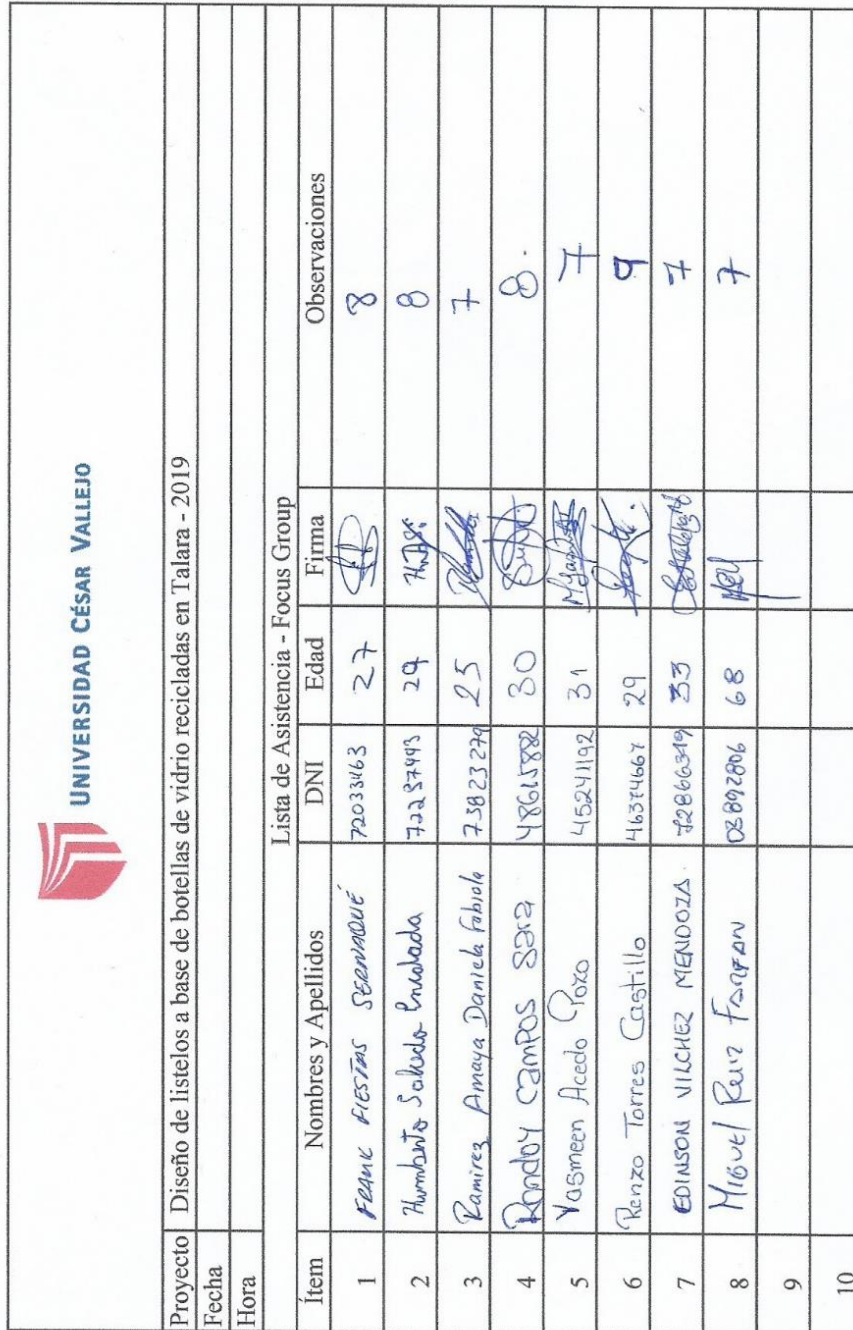 UNIVERSIDAD CÉSAR VALLEJO
Proyecto Diseño de listelos a base de botellas de vidrio recicladas en Talara - 2019
Fecha
Hora
Lista de Asistencia - Focus Group
Ítem Nombres y Apellidos DNI Edad Firma Observaciones
1 FRANK FIESTAS SERNAQUÉ 72033463 27 8
2 Humberto Salcedo 72237443 29 8
3 Ramirez Amaya Daniela Fabiola 73823279 25 7
4 Randoy Campos 48615882 30 8.
5 Yasmeen Acedo Pozo 45241192 31 7
6 Renzo Torres Castillo 46374667 29 9
7 EDINSON VILCHEZ MENDOZA. 72866349 33 7
8 Miguel Ruiz Farfan 03892806 68 7
9
10